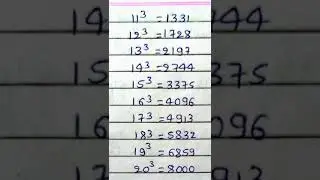 11³ = 1331
12³ = 1728
13³ = 2197
14³ = 2744
15³ = 3375
16³ = 4096
17³ = 4913
18³ = 5832
19³ = 6859
20³ = 8000